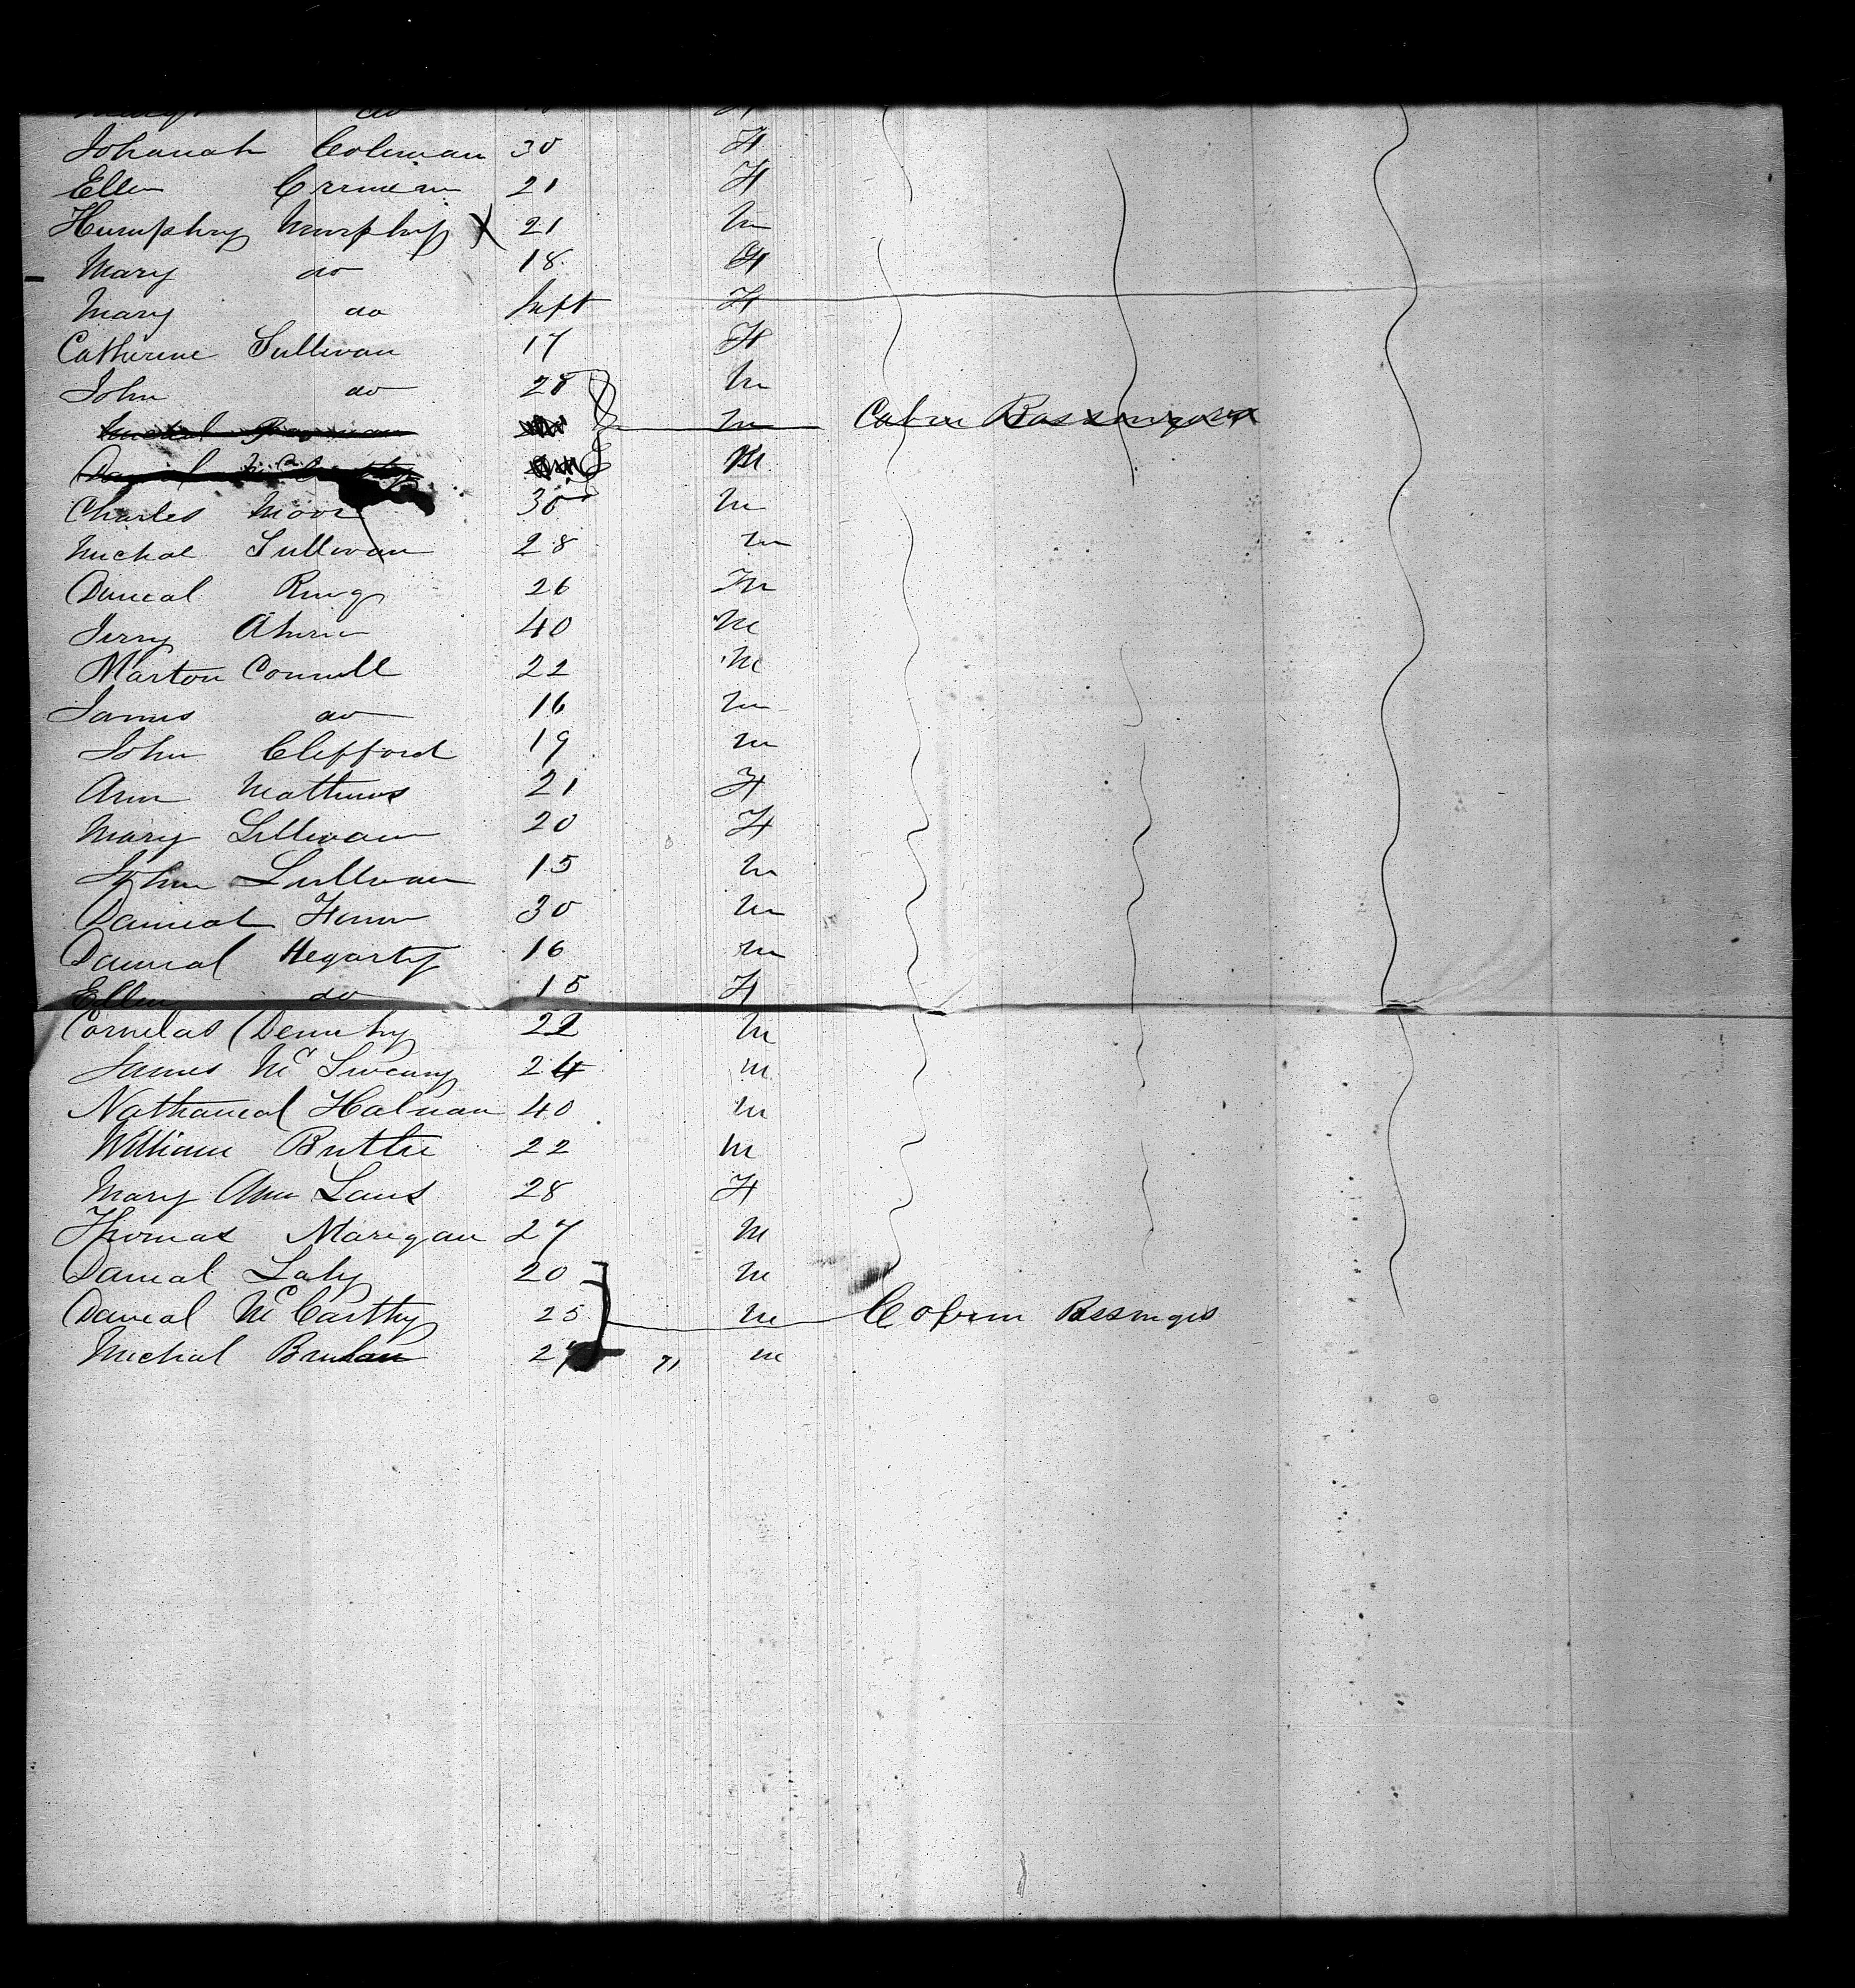 do
Johanah Coleman 30 F
Ellen 21 F
Humphry Murphy X 21 m
Mary do 18 F
Mary do Inft F
Catherine Sullivan 17 F
John do 28 m
m Cabin Passengers
M
Charles Moor 30 m
Michal Sullivan 28 m
Danieal Ring 26 m
Jerry Ahern 40 m
Marton Connell 22 m
James do 16 m
John Clifford 19 m
Ann Mathews 21 F
Mary Sullivan 20 F
John Sullivan 15 m
Danieal 30 m
Danieal Hegarty 16 m
Ellen do 15 F
Cornelas Dennehy 22 m
James Mc Sweany 24 m
Nathanieal Halnan 40 m
William Buttle 22 m
Mary Ann Laus 28 F
Thomas Marigan 27 m
Danieal Lahy 20 m
Danieal Mc Carthy 25 m Cabin Passingis
Michal 27 71 m